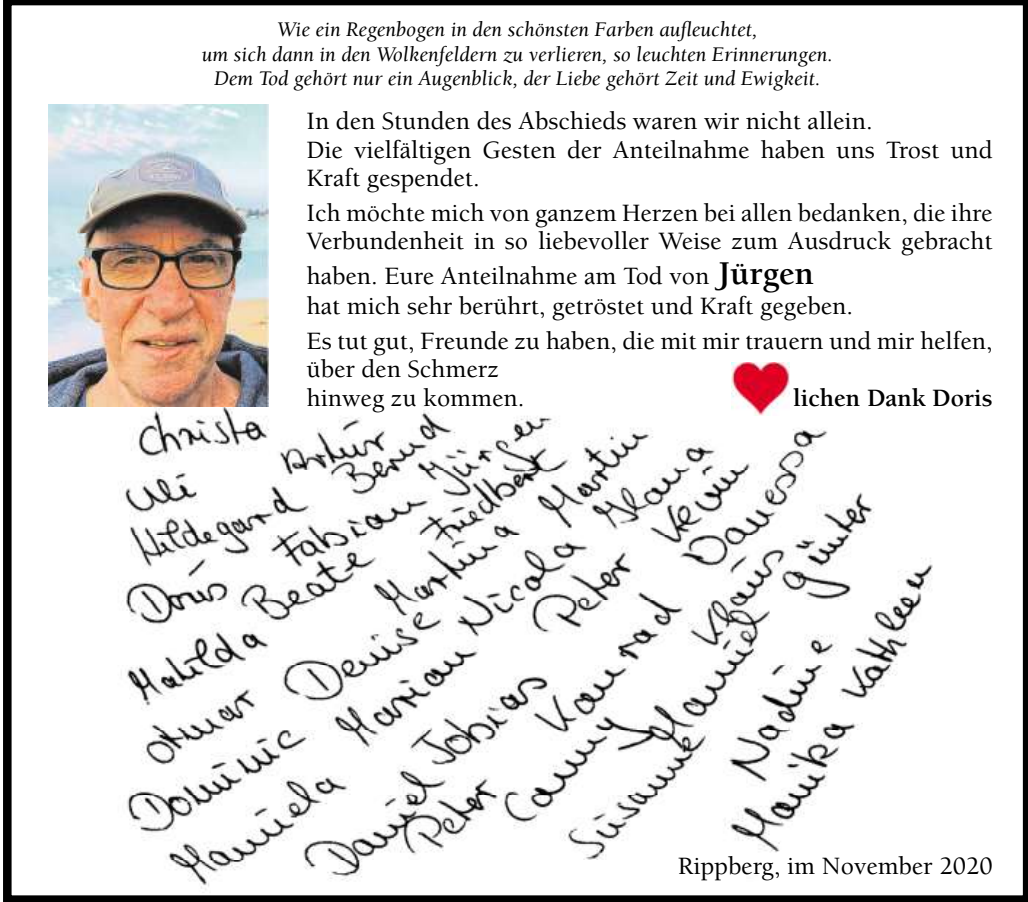 Wie ein Regenbogen in den schönsten Farben aufleuchtet,
um sich dann in den Wolkenfeldern zu verlieren, so leuchten Erinnerungen.
Dem Tod gehört nur ein Augenblick, der Liebe gehört Zeit und Ewigkeit.
In den Stunden des Abschieds waren wir nicht allein.
Die vielfältigen Gesten der Anteilnahme haben uns Trost und
Kraft gespendet.
Ich möchte mich von ganzem Herzen bei allen bedanken, die ihre
Verbundenheit in so liebevoller Weise zum Ausdruck gebracht
haben. Eure Anteilnahme am Tod von Jürgen
hat mich sehr berührt, getröstet und Kraft gegeben.
Es tut gut, Freunde zu haben, die mit mir trauern und mir helfen,
über den Schmerz
hinweg zu kommen.
lichen Dank Doris
Christa
Uli Artur
Hildegard Bernd
Doris Fabian Jürgen
Matilda Beate Friedbert
Otmar Denise Martina Martin
Dominic Marian Nicola Ilona
Manuela Tobias Peter Kevin
Daniel Konrad Vanessa
Peter Conny Klaus
Susanne Manuel Günter
Nadine
Monika Kathleen
Rippberg, im November 2020